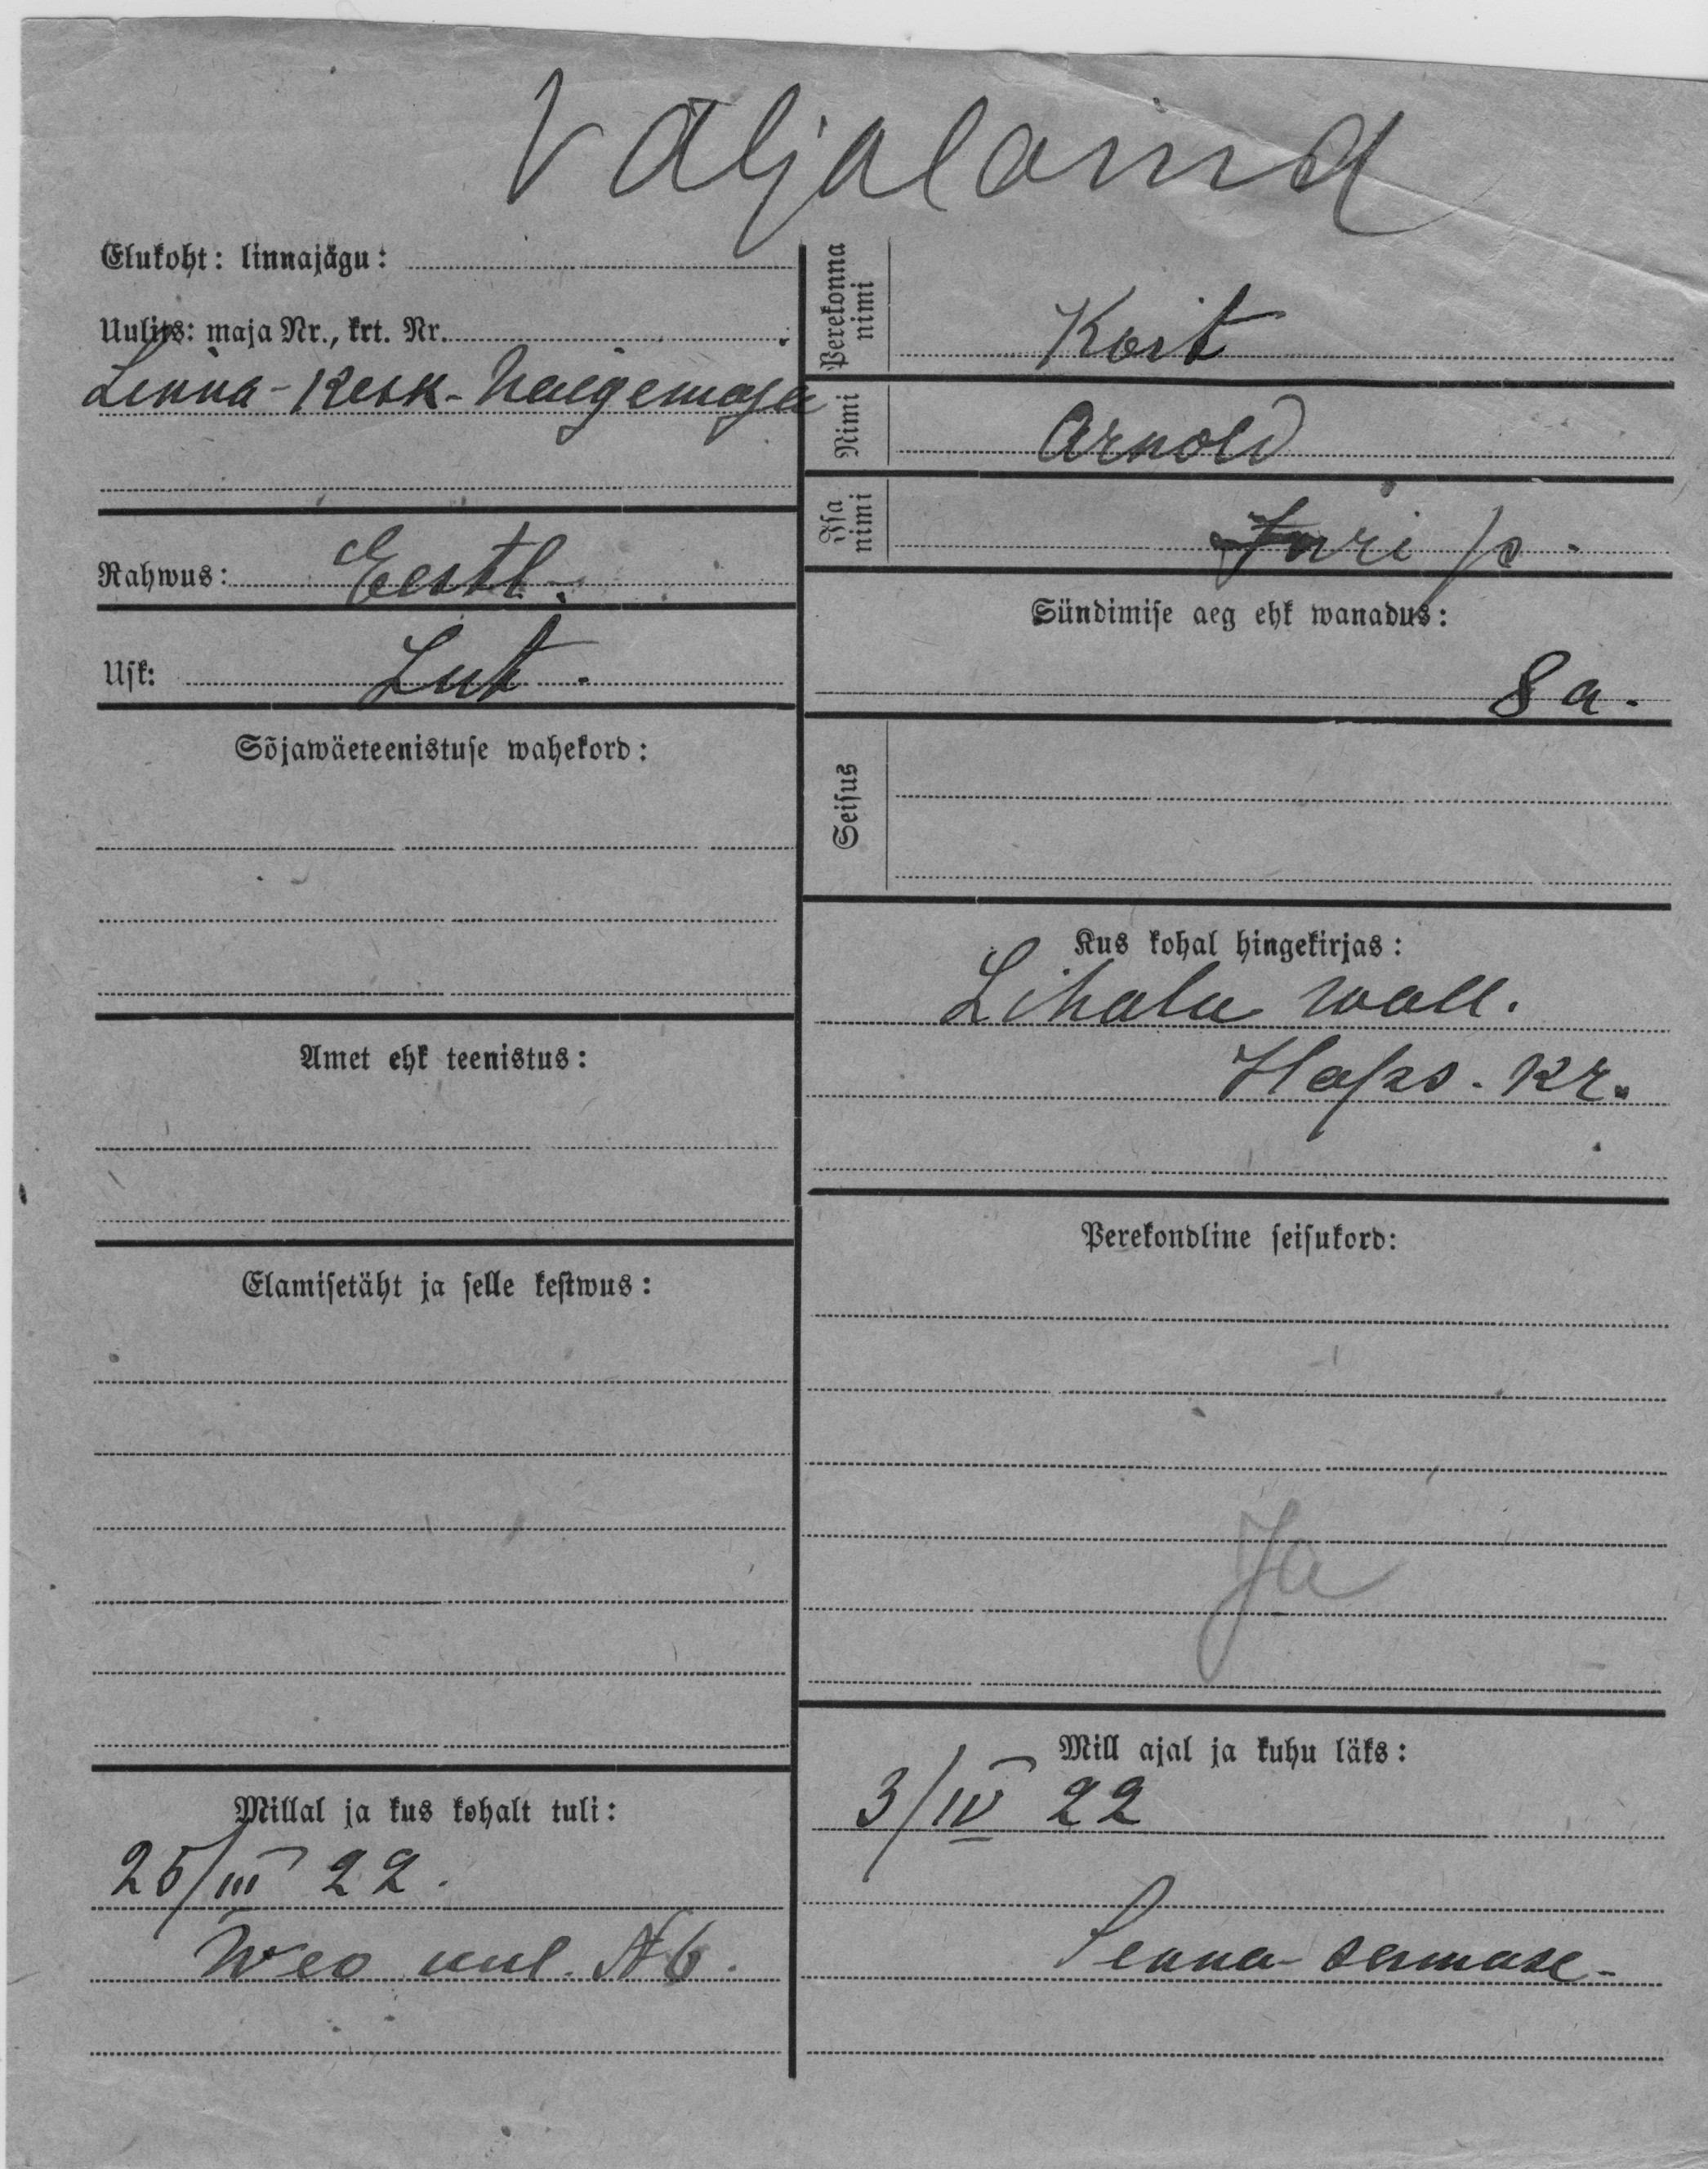 Väljaläind
Elukoht: linnajagu:
Uulits: maja Nr., krt. Nr.
Linna-Kesk-haigemaja
Rahwus: Eestl.
Usk: Lut.
Sõjawäeteenistuse wahekord:
Amet ehk teenistus:
Elamisetäht ja selle kestwus:
Millal ja kus kohalt tuli:
25/III 22.
Weo uul. N 6.
Perekonna nimi Koit
Nimi Arnold
Isa nimi Juri p.
Sündimise aeg ehk wanadus:
8 a.
Seisus
Kus kohal hingekirjas:
Lihala wall.
Haps. kr.
Perekondline seisukord:
Ja
Mill ajal ja kuhu läks:
3/IV 22